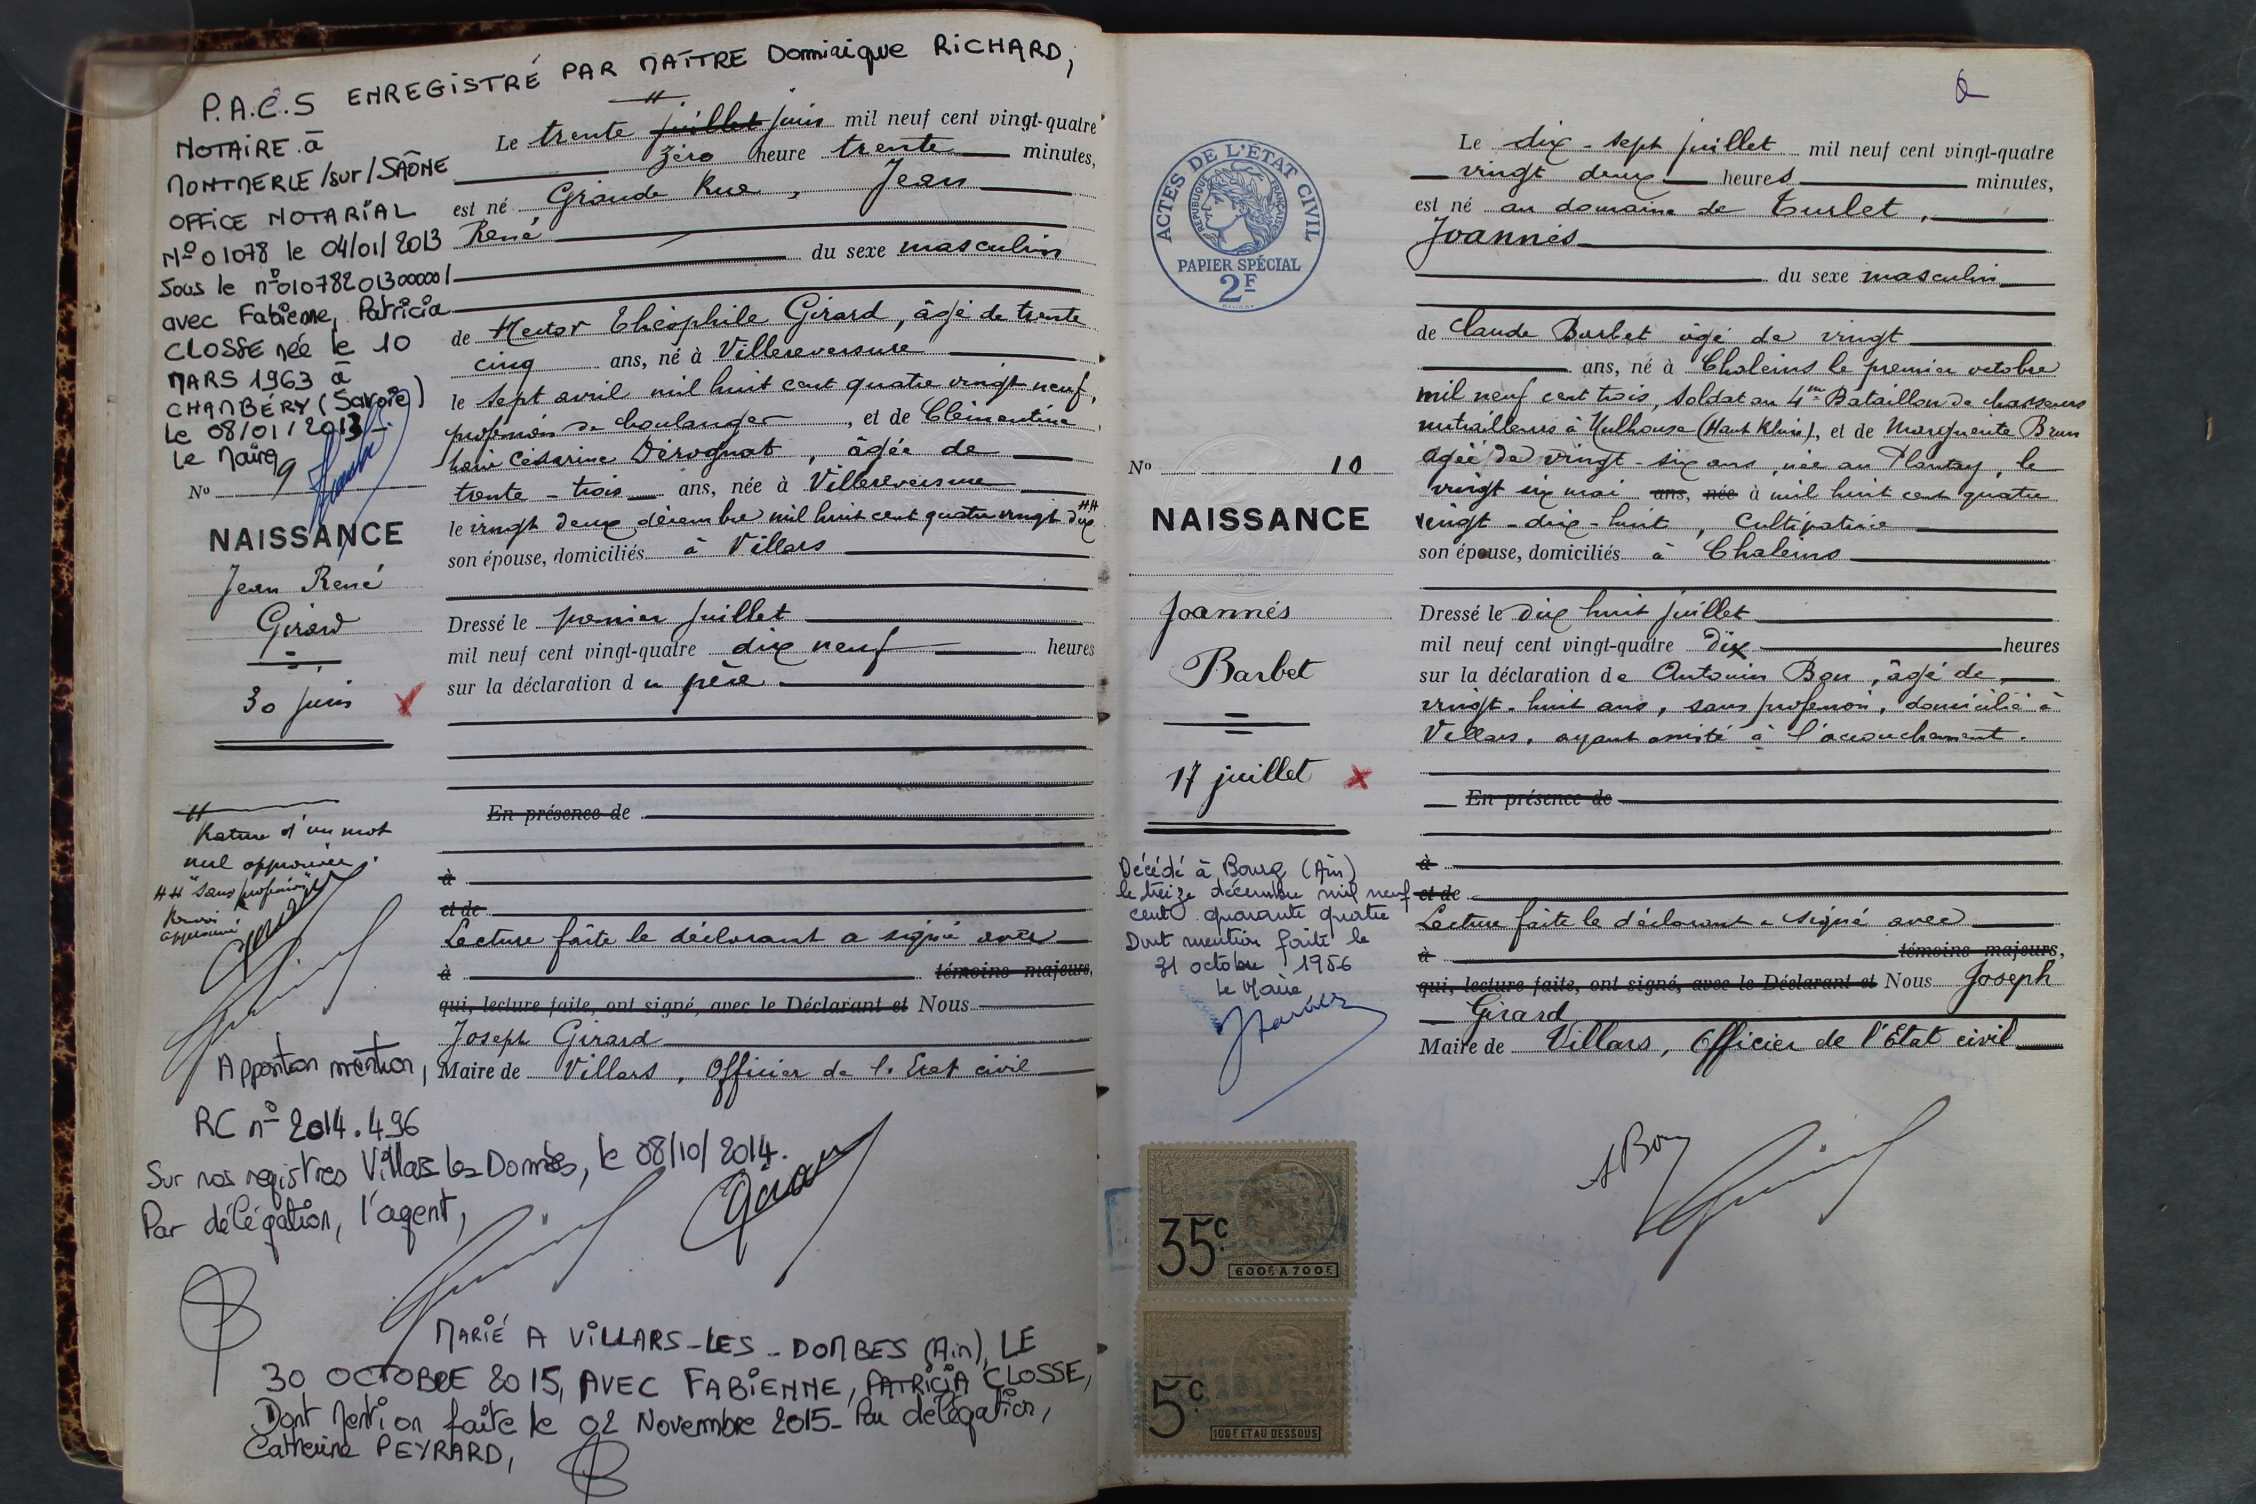 P.A.C.S ENREGISTRÉ PAR MAÎTRE Dominique RICHARD,
NOTAIRE à
MONTMERLE/sur/SAÔNE
OFFICE NOTARIAL
N° 01078 le 04/01/2013
Sous le n°010782013000001
avec Fabienne, Patricia
CLOSSE née le 10
MARS 1963 à
CHAMBÉRY (Savoie)
Le 08/01/2013.
Le Maire
N° 9
NAISSANCE
Jean René
Girard
30 juin
H
Rature d'un mot
nul approuvée.
HH "sans profession"
Renvoi
approuvé
Le trente juillet juin mil neuf cent vingt-quatre
zéro heure trente minutes,
est né Grande Rue, Jean
René
du sexe masculin
de Hector Théophile Girard, âgé de trente
cinq ans, né à Villereversure
le sept avril mil huit cent quatre vingt neuf,
profession de boulanger, et de Clémentine
Césarine Dérognat, âgée de
trente-trois ans, née à Villereversure
le vingt deux décembre mil huit cent quatre vingt dix HH
son épouse, domiciliés à Villars
Dressé le premier juillet
mil neuf cent vingt-quatre dix neuf heures
sur la déclaration du père
En présence de
à
et de
Lecture faite le déclarant a signé avec
à témoins majeurs,
qui, lecture faite, ont signé, avec le Déclarant et Nous
Joseph Girard
Maire de Villars, Officier de l'Etat civil
Apposition mention,
RC n° 2014.496
Sur nos registres Villars les Dombes, le 08/10/2014.
Par délégation, l'agent,
Girard
MARIÉ A VILLARS-LES-DOMBES (Ain), LE
30 OCTOBRE 2015, AVEC FABIENNE, PATRICIA CLOSSE,
Dont Mention faite le 02 Novembre 2015- Par délégation,
Catherine PEYRARD,
6
ACTES DE L'ÉTAT CIVIL
RÉPUBLIQUE FRANÇAISE
PAPIER SPÉCIAL
2F
N° 10
NAISSANCE
Joannés
Barbet
17 juillet
Décédé à Bourg (Ain)
le treize décembre mil neuf
cent quarante quatre
Dont mention faite le
31 octobre 1956
Le Maire
35c
600F A 700F
5c
100F ET AU DESSOUS
Le dix-sept juillet mil neuf cent vingt-quatre
vingt deux heures minutes,
est né au domaine de Turlet,
Joannés
du sexe masculin
de Claude Barbet âgé de vingt
ans, né à Chaleins le premier octobre
mil neuf cent trois, soldat au 4me Bataillon de chasseurs
mitrailleurs à Mulhouse (Haut Rhin), et de Marguerite Brun
agée de vingt-six ans, née au Plantay, le
vingt six mai ans, née à mil huit cent quatre
vingt-dix-huit, cultivatrice
son épouse, domiciliés à Chaleins
Dressé le dix huit juillet
mil neuf cent vingt-quatre dix heures
sur la déclaration de Antonin Bon, âgé de
vingt-huit ans, sans profession, domicilié à
Villars, ayant assisté à l'accouchement.
En présence de
à
et de
Lecture faite le déclarant a signé avec
à témoins majeurs,
qui, lecture faite, ont signé, avec le Déclarant et Nous Joseph
Girard
Maire de Villars, Officier de l'Etat civil
A Bon